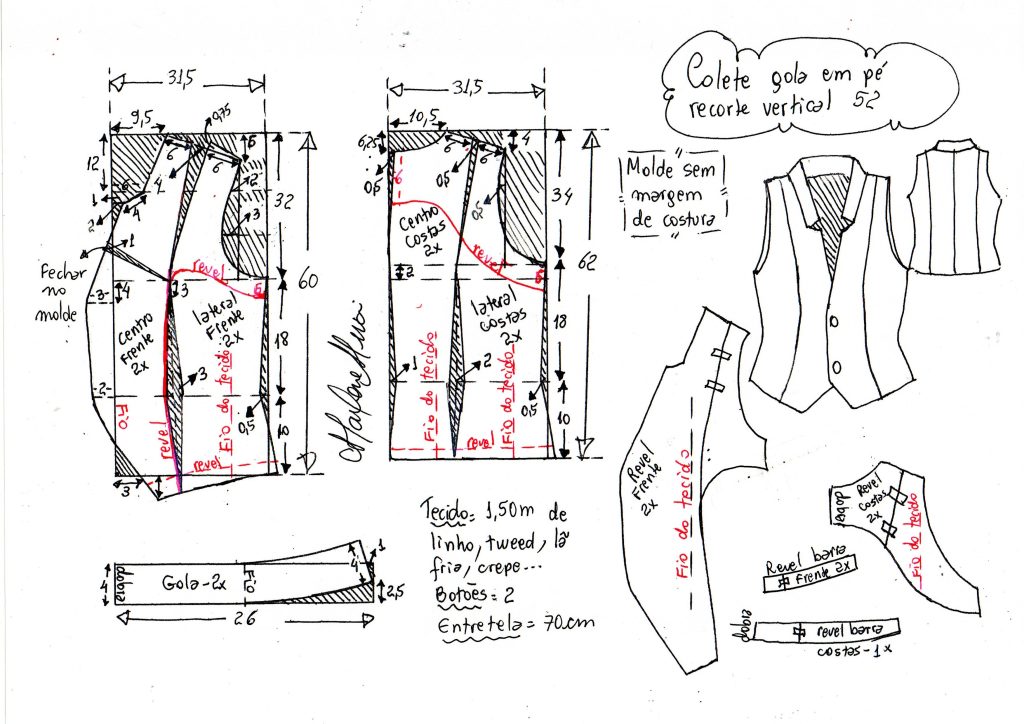 Colete gola em pé
recorte vertical 52
Molde sem
margem
de costura
31,5
9,5
0,75
12
6
6
6
4
1
2
4
2
3
32
1
Fechar
no
molde
3
4
3
revel
5
60
Centro
Frente
2x
lateral
Frente
2x
18
2
3
0,5
Fio
revel
Fio do tecido
10
revel
3
31,5
10,5
6,25
0,5
6
6
4
0,5
0,5
34
Centro
Costas
2x
revel
2
5
62
lateral
costas
2x
18
1
2
0,5
10
Fio do tecido
Fio do tecido
revel
4
dobra
Gola-2x
Fio
4
1
4
2,5
26
Tecido= 1,50m de
linho, tweed, lã
fria, crepe...
Botões= 2
Entretela= 70cm
Revel
Frente
2x
Fio do tecido
dobra
Revel
costas
2x
Fio do tecido
Revel barra
Frente 2x
dobra
revel barra
costas-1x